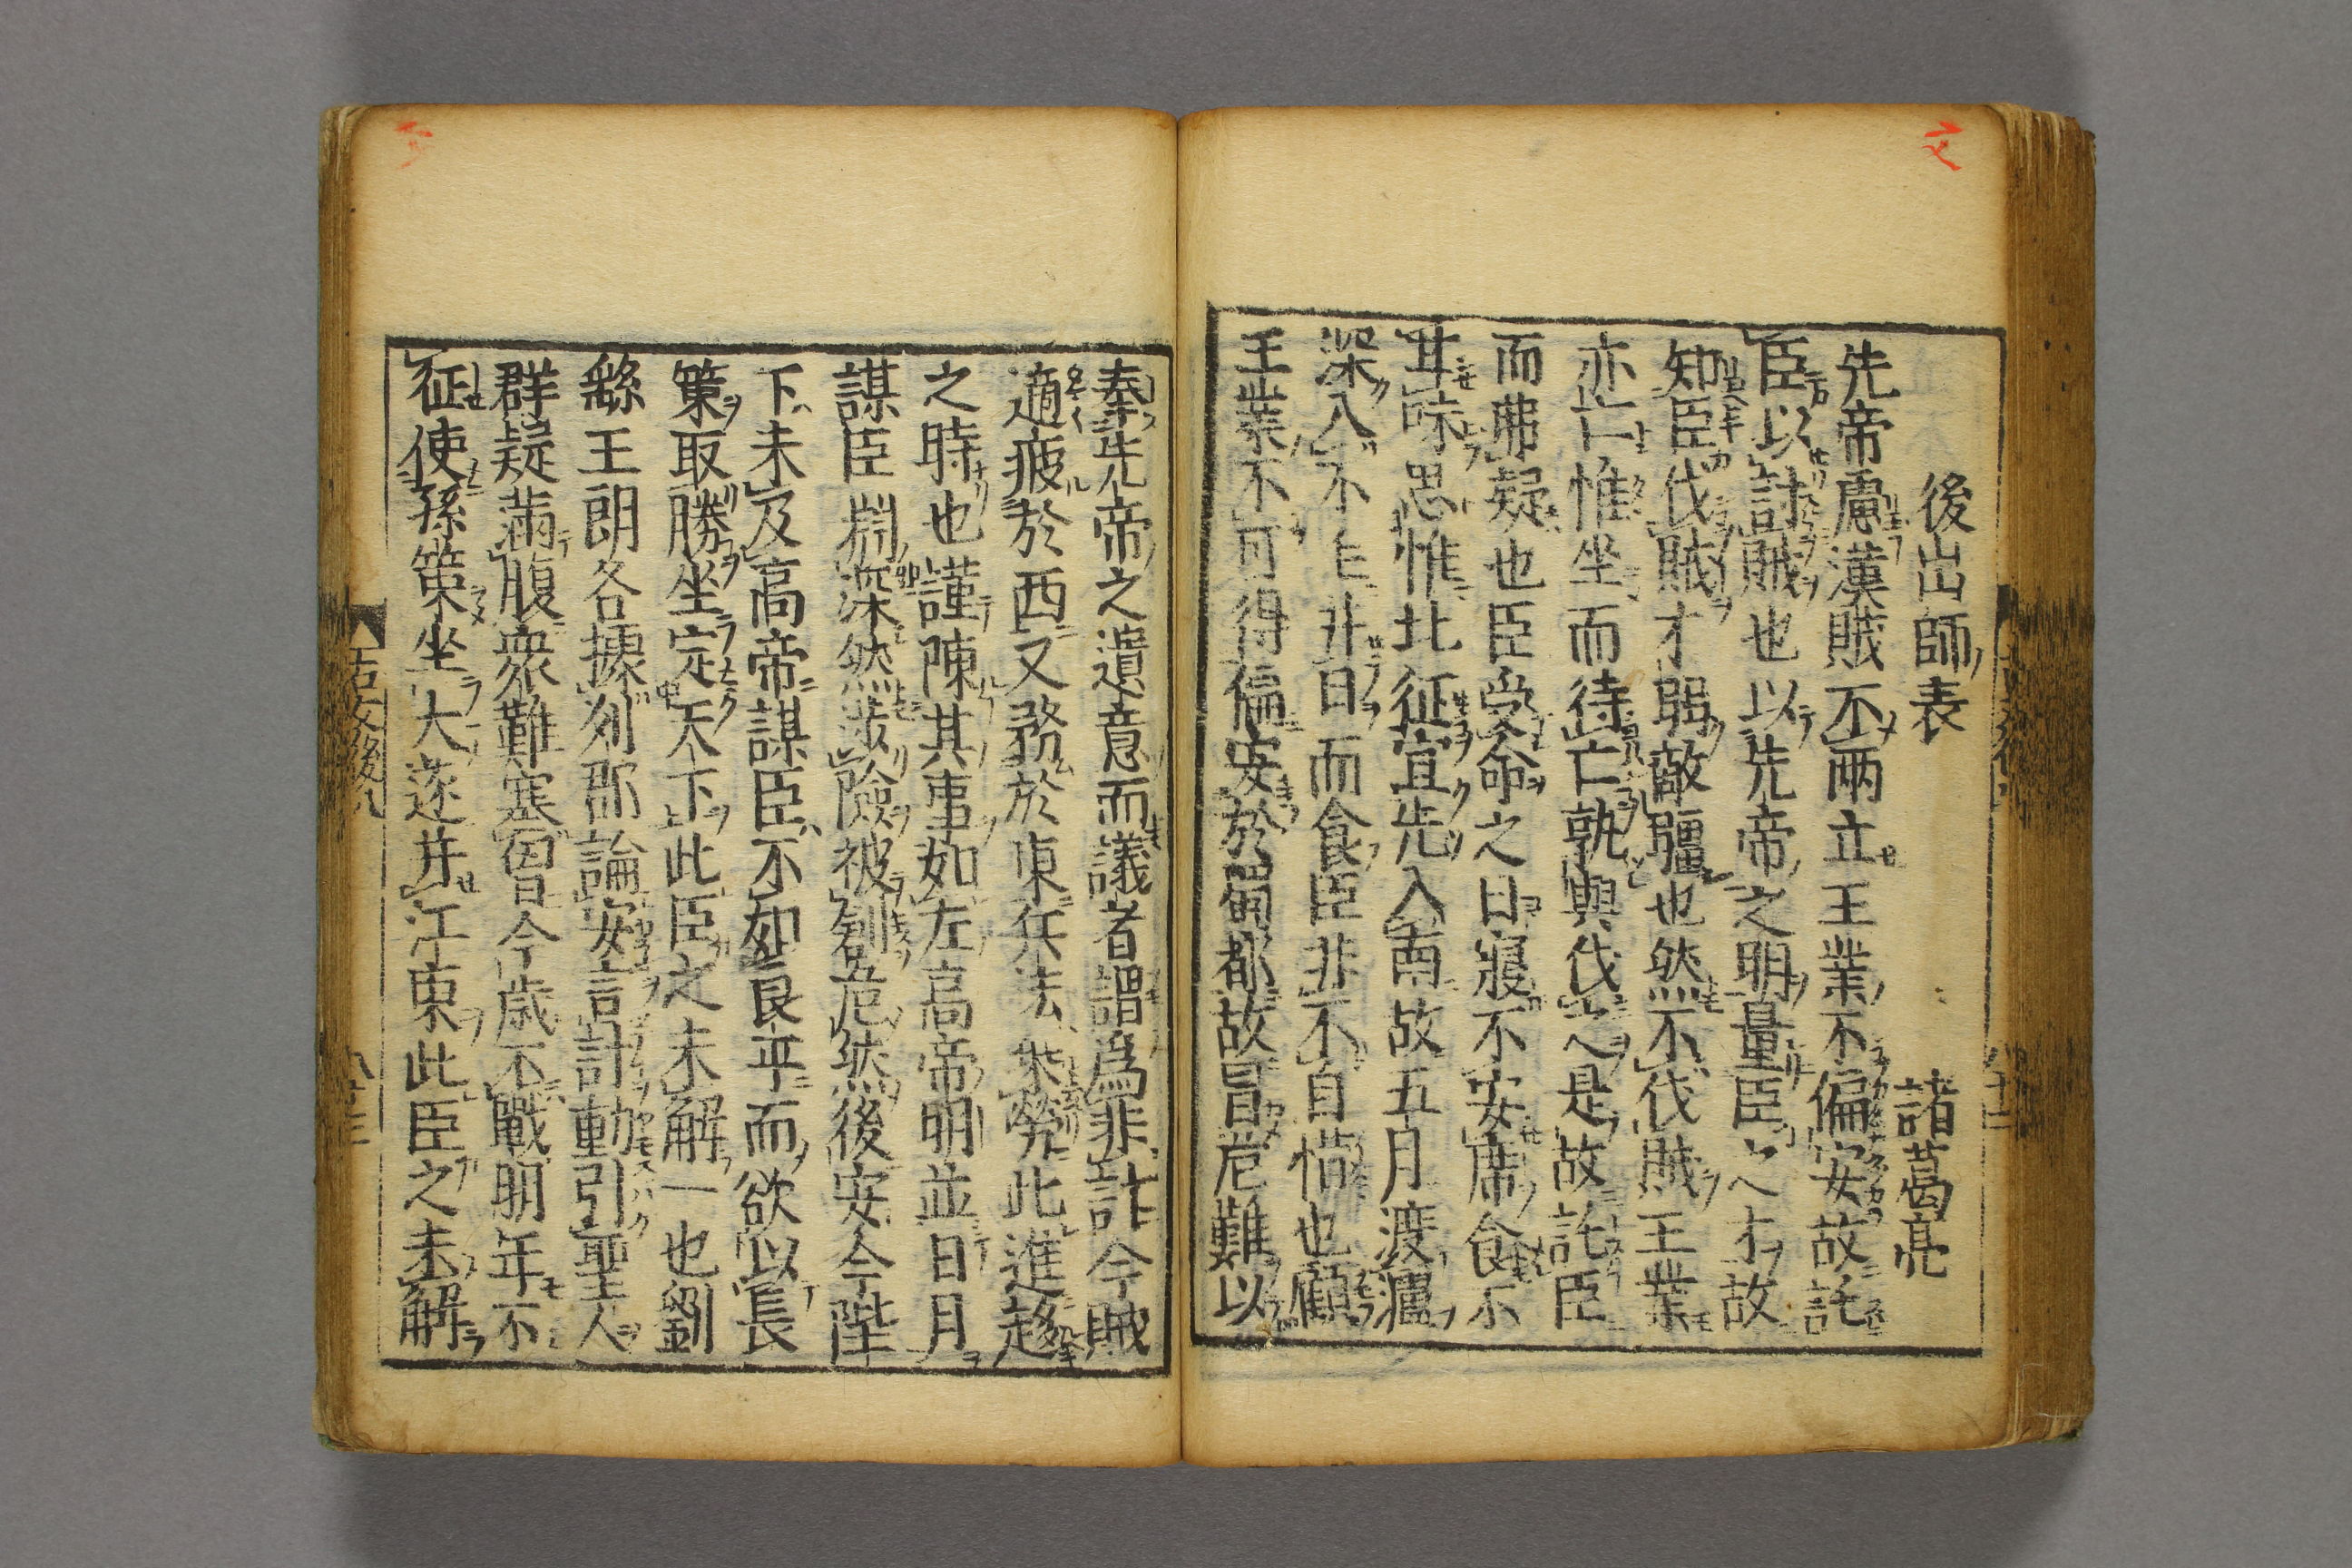 後出師表
諸葛亮
先帝慮漢賊不兩立王業不偏安故託
臣以討賊也以先帝之明量臣之才故
知臣伐賊才弱敵彊也然不伐賊王業
亦亡惟坐而待亡孰與伐之是故託臣
而弗疑也臣受命之日寢不安席食不
甘味思惟北征宜先入南故五月渡瀘
深入不毛并日而食臣非不自惜也顧
王業不可得偏安於蜀都故冒危難以
奉先帝之遺意而議者謂爲非計今賊
適疲於西又務於東兵法乗勞此進趍
之時也謹陳其事如左高帝明並日月
謀臣淵深然涉險被創危然後安今陛
下未及高帝謀臣不如良平而欲以長
策取勝坐定天下此臣之未解一也劉
繇王朗各據列郡論安言計動引聖人
群疑滿腹衆難塞胷今歳不戰明年不
征使孫策坐大遂并江東此臣之未解
古文後九
八十三